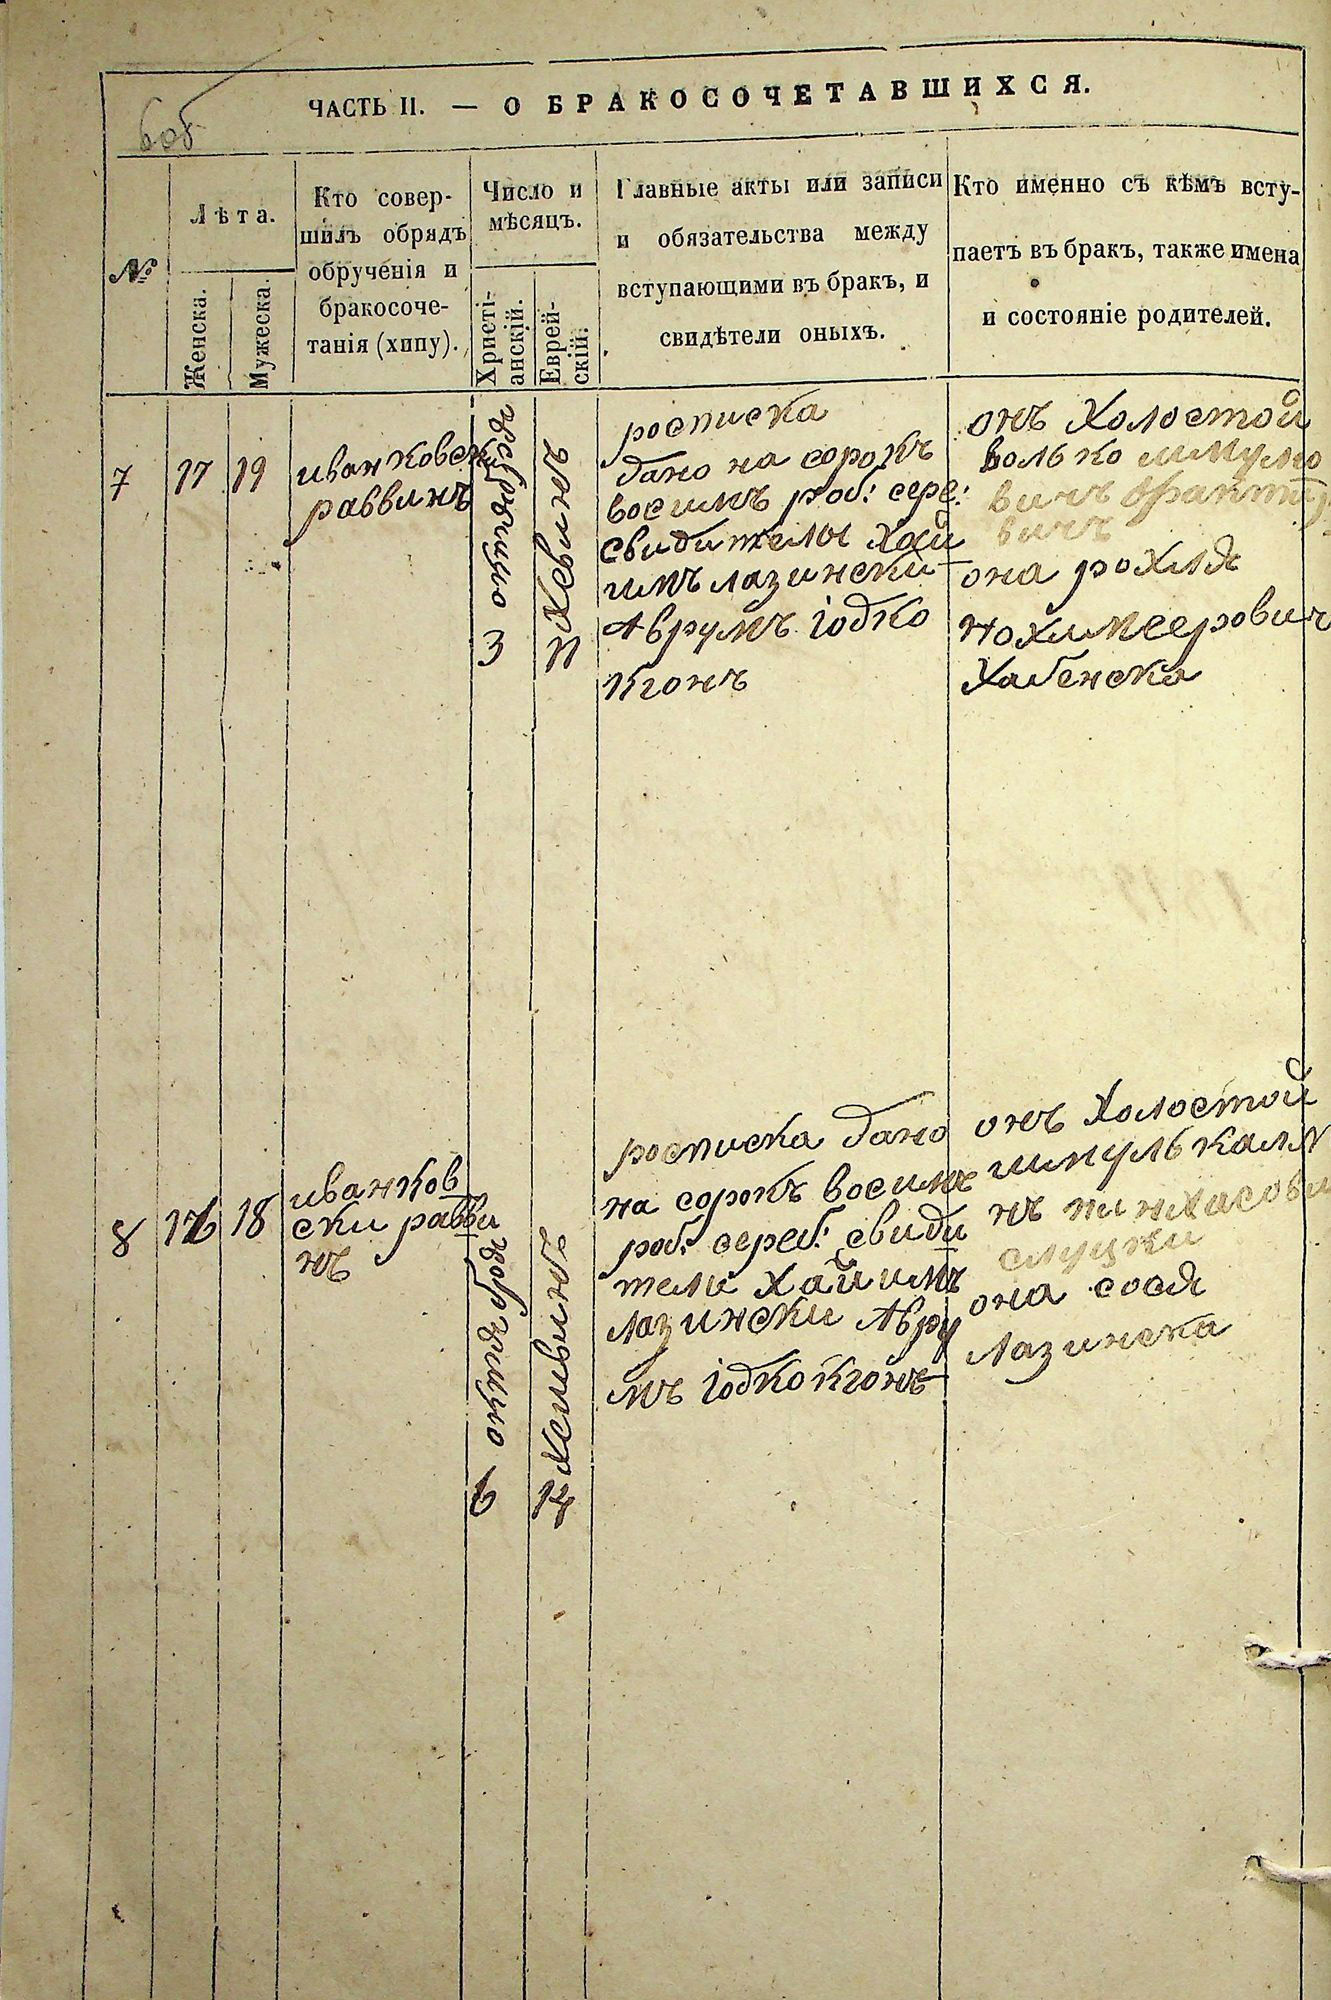 60б
ЧАСТЬ II. — О БРАКОСОЧЕТАВШИХСЯ.
№
Лѣта.
Женска.
Мужеска.
Кто совер-
шилъ обрядъ
обрученія и
бракосоче-
танія (хипу).
Число и
мѣсяцъ.
Христі-
анскій.
Еврей-
скій.
Главные акты или записи
и обязательства между
вступающими въ бракъ, и
свидѣтели оныхъ.
Кто именно съ кѣмъ всту-
паетъ въ бракъ, также имена
и состояніе родителей.
7
17
19
иванковски
раввинъ
3
росписка
дано на сорокъ
восимъ роб: сере:
свидителы хаи
имъ лазински
Аврумъ іодко
кгонъ
онъ холостой
волько шмуло
вичъ
вичъ
она рохля
нохимеерович
хабенска
8
18
иванков
ски равви
нъ
6
росписка дано
на сорокъ восимъ
роб: сереб: свиди
тели хайимъ
лазински Авру
мъ іодко кгонъ
онъ холостой
шмуль калм
нъ пинхасови
слуцки
она сося
лазинска